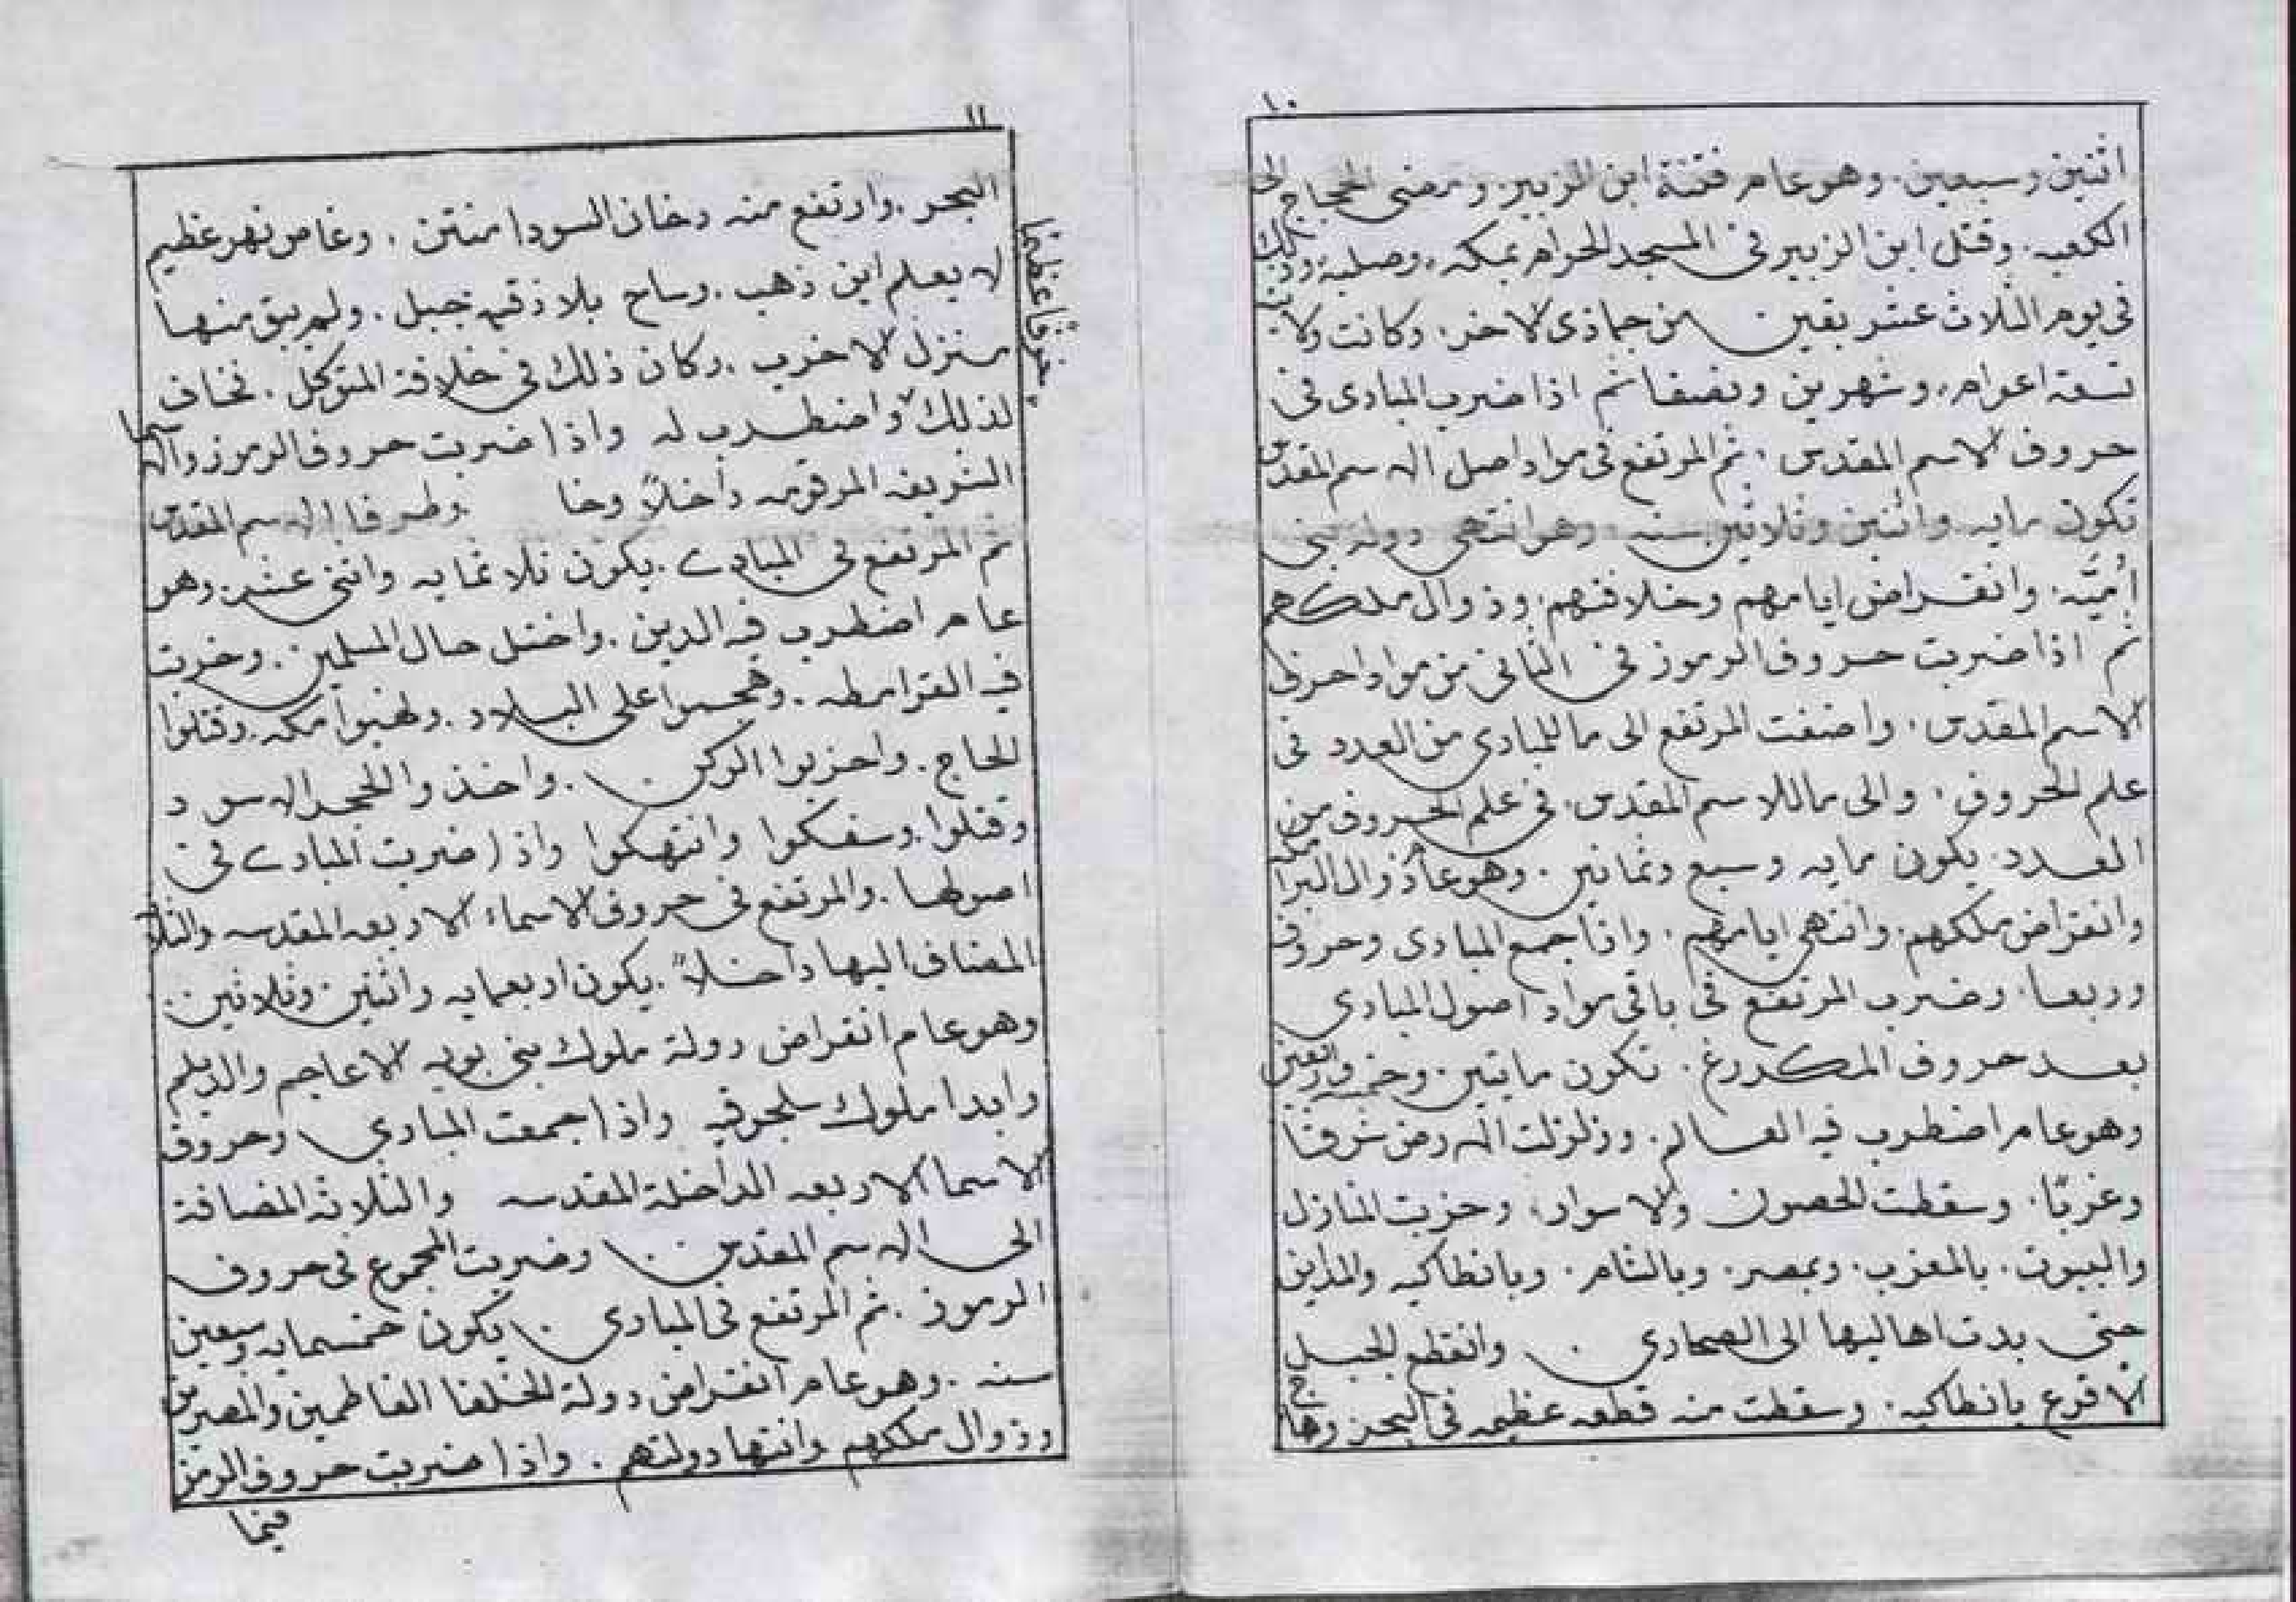 ١٠
اثنين وسبعين. وهو عام فتنة ابن الزبير. ومضى الحجاج الى
الكعبه. وقتل ابن الزبير فى المسجد الحرام بمكه. وصلبه وذلك
فى يوم الثلاث عشر بقين من جماذى الاخر. وكانت ولايته
تسعة اعوام. وشهرين ونصفا ثم اذا ضرب المبادى فى
حروف الاسم المقدس. ثم المرتفع فى مواد اصل الاسم المقدس
تكون مايه واثنين وثلاثين سنه وهو انتهى دولة بنى
أميّه. وانقراض ايامهم وخلافتهم. وذوال ملكهم
ثم اذا ضربت حروف الرموز فى الثانى من مواد احرف
الاسم المقدس. واضفت المرتفع الى ما للمبادى من العدد فى
علم الحروف. والى ما للاسم المقدس. فى علم الحروف من
العدد. يكون مايه وسبع وثمانين. وهو عام ذوال البرامكه
وانقراض ملكهم. وانتهى ايامهم. واذا جمع المبادى وحروف
وربعها. وضرب المرتفع فى باقى مواد اصول المبادى
بعد حروف المكرر. تكون ماتين. وخمسه واربعين
وهو عام اضطرب فيه العالم. وزلزلت الارض شرقا
وغربّا. وسقطت الحصون والاسوار. وخربت المنازل
والبيوت. بالمغرب. وبمصر. وبالشام. وبانطاكيه والمداين
حتى بدت اهاليها الى الصحارى. وانقطع الجبل
الاقرع بانطاكيه. وسقطت منه قطعه عظيمه فى البحر وهاج
١١
البحر. وارتفع منه دخان اسودا منتن. وغاص نهر عظيم
لا يعلم اين ذهب. وساح بلاذقيه جبل. ولم يبق منها
منزل الا خرب. وكان ذلك فى خلافة المتوكل. فخاف
خوفا عظيما
لذلك واضطرب له واذا ضربت حروف الرموز والاسما
الشريفه المرقومه داخلاً وخا وطرفا الاسم المقدس
ثم المرتفع فى المبادى. يكون ثلاثمايه واثنى عشر. وهو
عام اضطرب فيه الدين. واختل حال المسلمين. وخرجت
فيه القرامطه. وهجموا على البلاد. ونهبوا مكه. وقتلوا
الحاج. واخربوا الركن. واخذوا الحجر الاس د
وقتلوا. وسفكوا وانتهكوا واذا ضربت المبادى فى
اصولها. والمرتفع فى حروف الاسماء الاربعه المقدسه والثلاثه
المضاف اليها داخلاً. يكون اربعمايه واثنتين وثلاثين.
وهو عام انقراض دولة ملوك بنى بويه الاعاجم والديلم
وابدا ملوك سلجوقيه واذا جمعت المبادى وحروف
الاسما الاربعه الداخلة المقدسه والثلاثة المضافة
الى الاسم المقدس. وضربت المجموع فى حروف
الرموز. ثم المرتفع فى المبادى. يكون خمسمايه وسبعين
سنه. وهو عام انقراض دولة الخلفا الفاطمين والمصرين
وذوال ملكهم وانتها دولتهم. واذا ضربت حروف الرمز
فيما